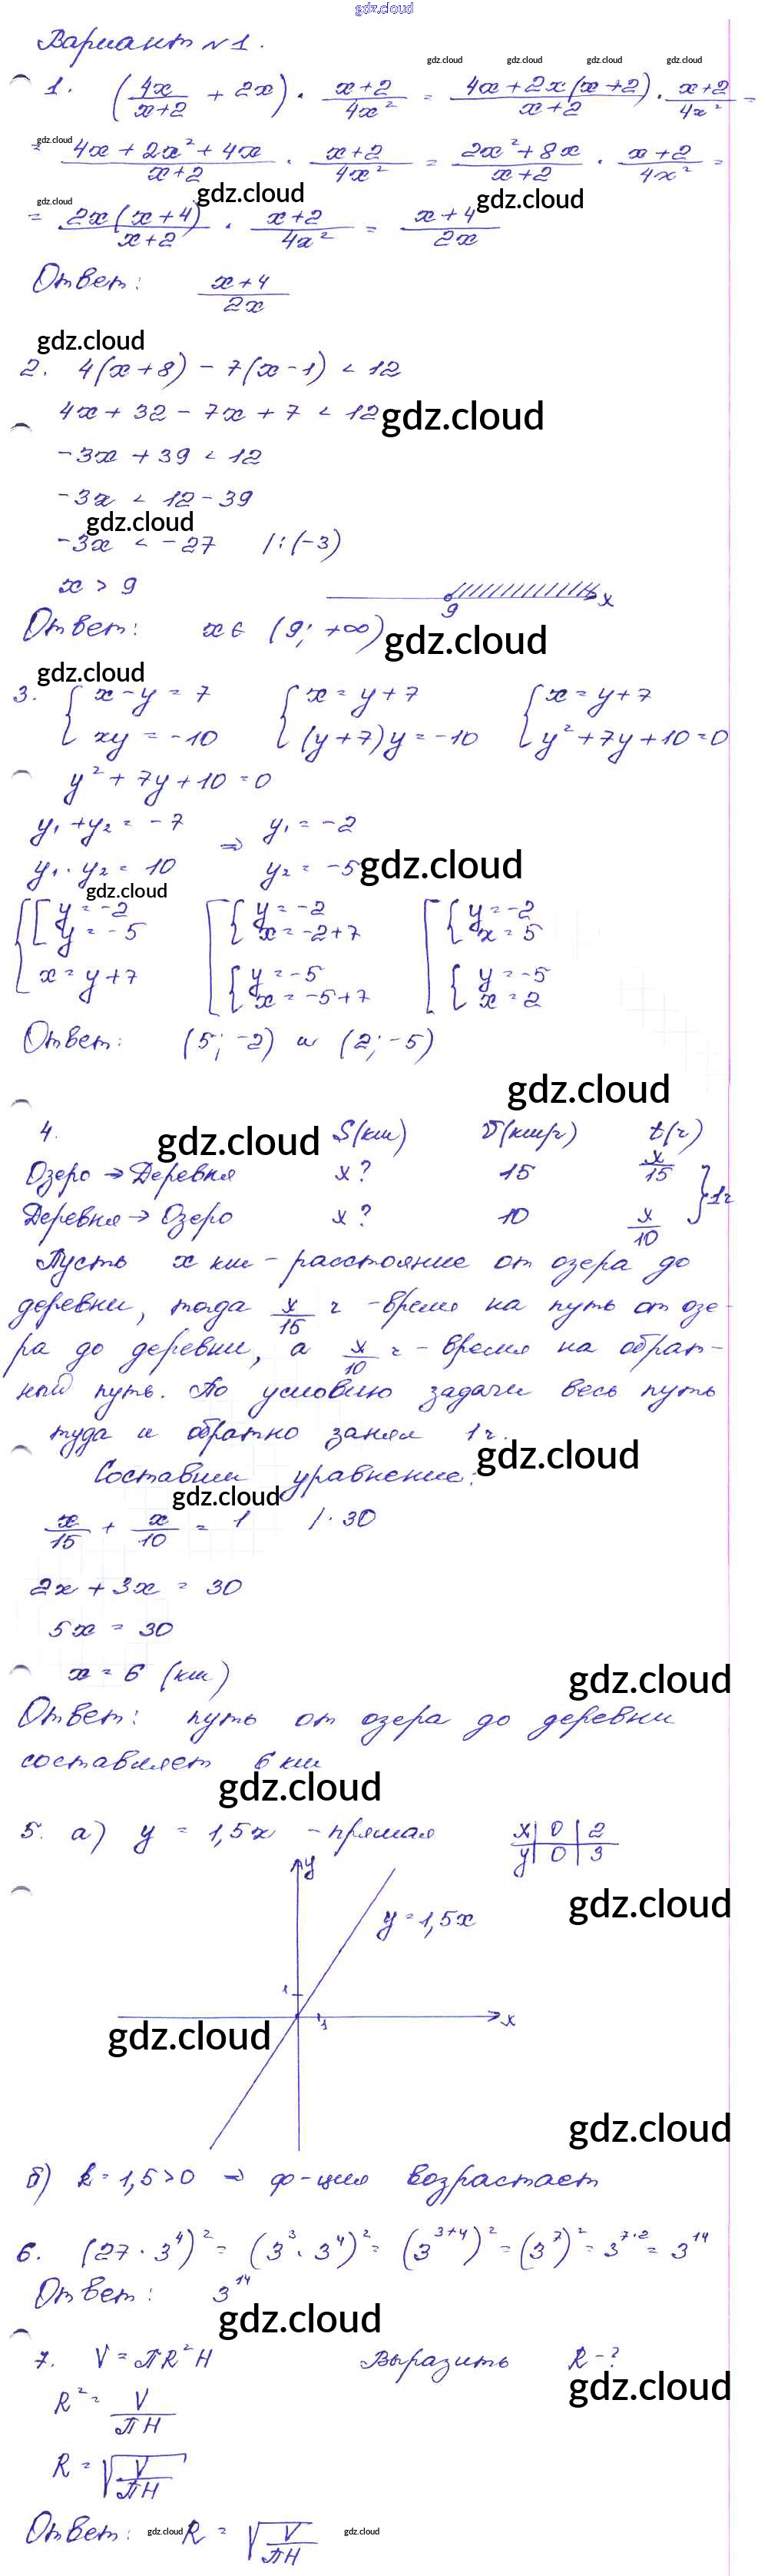 gdz.cloud
Вариант №1.
gdz.cloud gdz.cloud gdz.cloud gdz.cloud
1. (4x/(x+2) + 2x) · (x+2)/(4x²) = (4x+2x(x+2))/(x+2) · (x+2)/(4x²) =
gdz.cloud
= (4x+2x²+4x)/(x+2) · (x+2)/(4x²) = (2x²+8x)/(x+2) · (x+2)/(4x²) =
gdz.cloud gdz.cloud gdz.cloud
= (2x(x+4))/(x+2) · (x+2)/(4x²) = (x+4)/(2x)
Ответ: (x+4)/(2x)
gdz.cloud
2. 4(x+8) - 7(x-1) < 12
4x + 32 - 7x + 7 < 12
gdz.cloud
-3x + 39 < 12
-3x < 12-39
gdz.cloud
-3x < -27 /:(-3)
x > 9
9 x
Ответ: x∈ (9; +∞)
gdz.cloud
gdz.cloud
3. { x-y = 7 { x = y+7 { x = y+7
{ xy = -10 { (y+7)y = -10 { y²+7y+10=0
y²+7y+10=0
y₁+y₂ = -7 ⇒ y₁ = -2
y₁·y₂ = 10 y₂ = -5
gdz.cloud
gdz.cloud
{ [ y = -2 [ { y = -2 [ { y = -2
y = -5 x = -2+7 x = 5
x = y+7 { y = -5 { y = -5
x = -5+7 x = 2
Ответ: (5; -2) и (2; -5)
gdz.cloud
4. S(км) V(км/ч) t(ч)
gdz.cloud
Озеро → Деревня x? 15 x/15 } 1ч
Деревня → Озеро x? 10 x/10
Пусть x км - расстояние от озера до
деревни, тогда x/15 ч - время на путь от озе-
ра до деревни, а x/10 ч - время на обрат-
ный путь. По условию задачи весь путь
туда и обратно занял 1ч.
gdz.cloud
Составим уравнение:
gdz.cloud
x/15 + x/10 = 1 /·30
2x + 3x = 30
5x = 30
x = 6 (км)
gdz.cloud
Ответ: путь от озера до деревни
составляет 6 км
gdz.cloud
5. а) y = 1,5x - прямая x | 0 | 2
y | 0 | 3
y
gdz.cloud
y = 1,5x
1
1 x
gdz.cloud
gdz.cloud
б) k = 1,5>0 ⇒ ф-ция возрастает
6. (27 · 3⁴)² = (3³ · 3⁴)² = (3³⁺⁴)² = (3⁷)² = 3⁷·² = 3¹⁴
Ответ: 3¹⁴
gdz.cloud
7. V = πR²H Выразить R-?
gdz.cloud
R² = V/(πH)
R = √(V/(πH))
Ответ: gdz.cloud R = √(V/(πH)) gdz.cloud